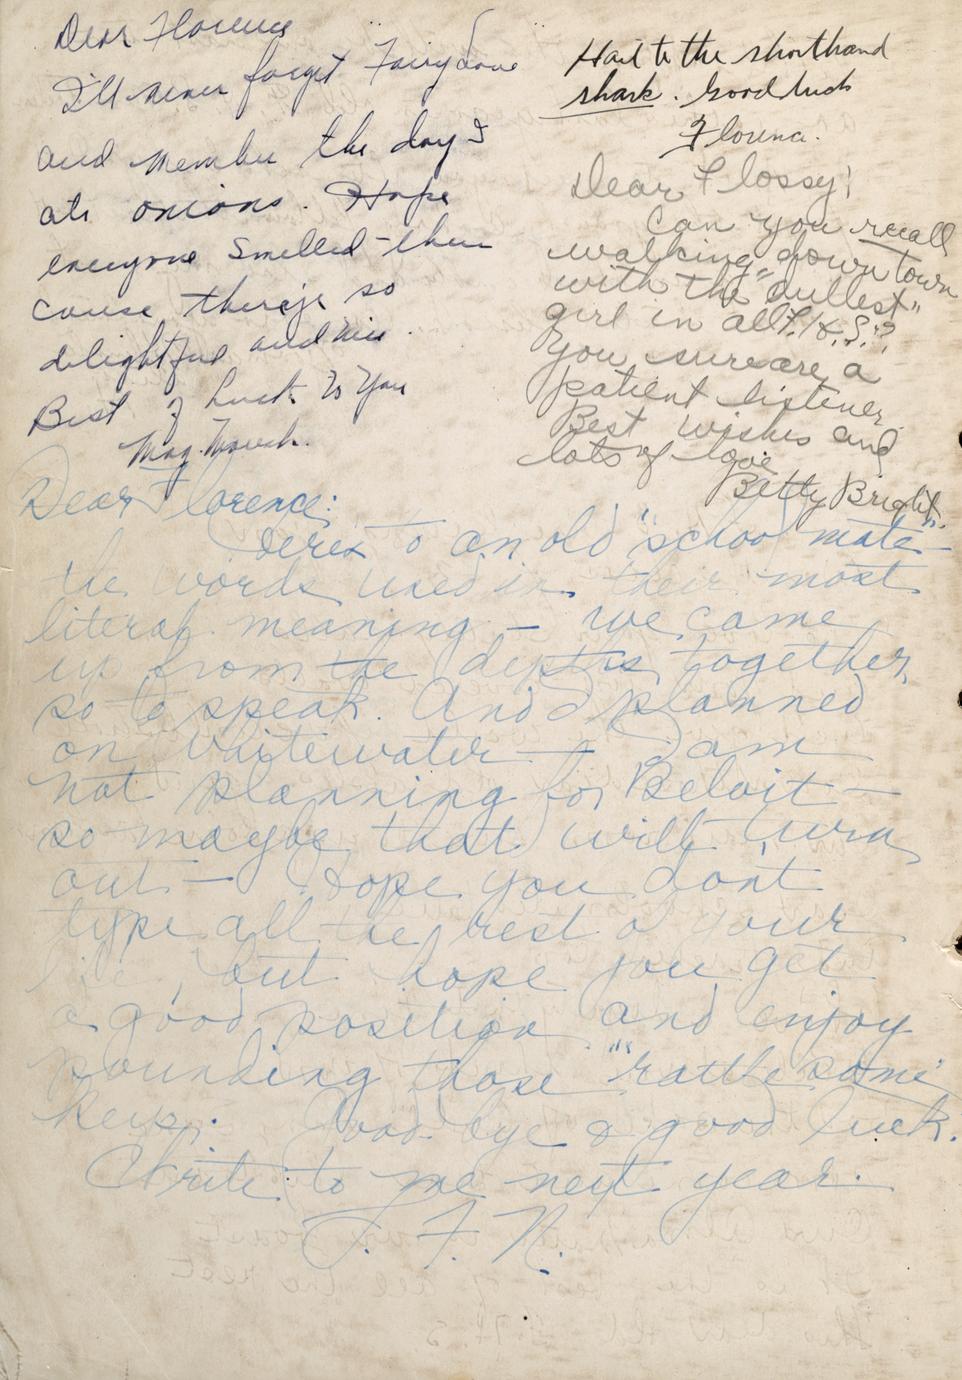 Dear Florence
I'll never forget Fairydome
and member the day I
ate onions. Hope
everyone smelled them
cause there's so
delightful and nice.
Best of Luck to You
Hail to the shorthand
shark. Good luck
Florena.
Dear Flossy!
Can you recall
walking down town
with the "dullest"
girl in all F.H.S.?
You sure are a
patient listener.
Best wishes and
lots of love
Betty Bright.
Dear Florence:
Heres to an old "school mate" -
the words used in their most
literal meaning - we came
up from the depths together,
so to speak. And I planned
on Whitewater - I am
not planning for Beloit -
so maybe that will turn
out - Hope you don't
type all the rest o your
life, but hope you get
a good position and enjoy
pounding those "rattlesome"
keys. Good bye & good luck.
Write to me next year.
J. F. N.